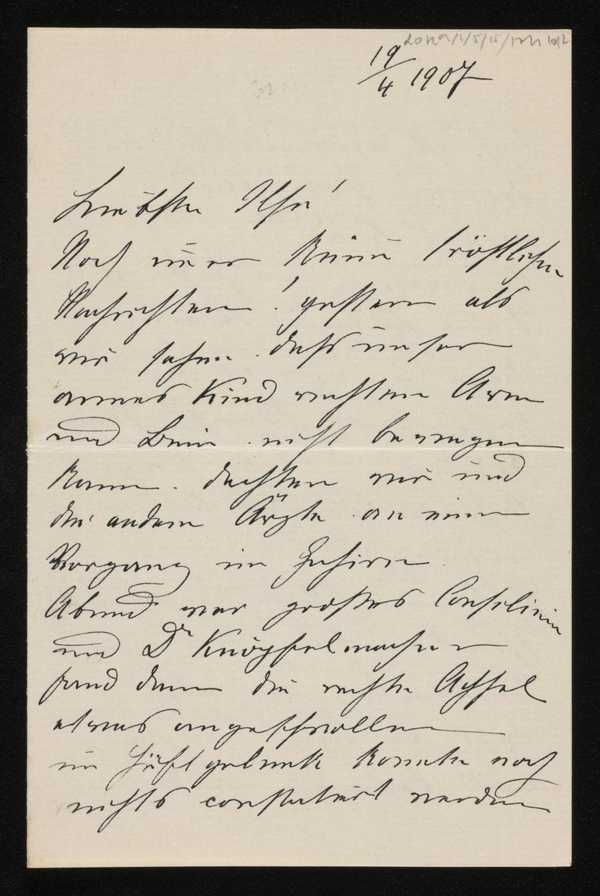 19/4 1907
Liebste Ilse!
Noch immer keine tröstlichen
Nachrichten! gestern als
wir sahen dass unser
armes Kind rechten Arm
und Bein nicht bewegen
kann. dachten wir und
die andern Ärzte an einen
Vorgang im Gehirn.
Abend war großes Consilium
und Dr Knöpfelmacher
fand dann die rechte Achsel
etwas angeschwollen
im Hüftgelenk konnte noch
nichts constatirt werden